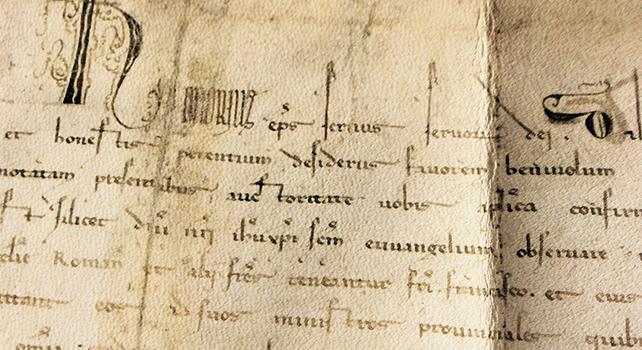 Honorius eps seruus seruor dei .
et honestis petentium desideriis fauorem beniuolum
notatam presentibus auctoritate uobis aplica confirm
silicet dni nri ihu xpi scm euuangelium obseruare
clie Roman et alij fres teneantur fri . francisco . et eius
ttant eos ad suos ministros prouinciales quib